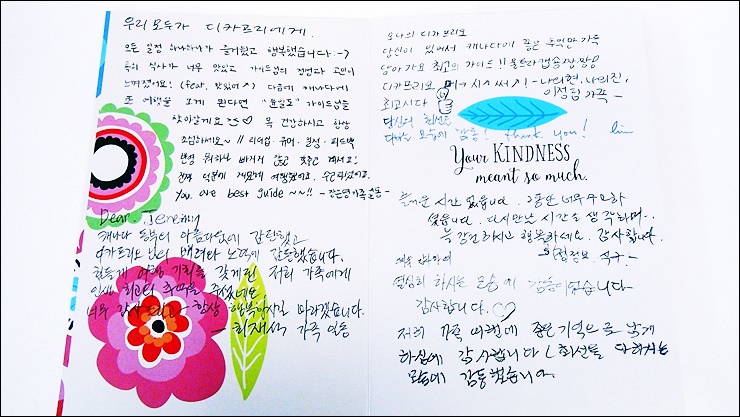 우리 모두가 디카프리에게.
모든 일정 하나하나가 즐거웠고 행복했습니다 :-)
특히 식사가 너무 맛있고 가이드님의 정성과 고민이
느껴졌어요! (feat. 맛집여신) 다음에 캐나다에
또 여행을 오게 된다면 "윤실도" 가이드님을
찾아갈게요 ♡ 꼭 건강하시고 항상
조심하세요~ !! 리더쉽·유머·열정·피드백
뭐하나 빠지지 않고 갖추고 계셔요!
덕분에 재밌게 여행했어요.
You are best guide ~~!! -장은영가족일동-
Dear. Jeremy
캐나다 동부의 아름다움에 감탄했고
디카프리오 님의 배려와 노력에 감동했습니다.
힘들게 여행 기회를 갖게된 저희 가족에게
인생 최고의 추억을 주셨네요
너무 감사드리고 항상 행복하시길 바라겠습니다.
- 최재석 가족 일동
오 나의 디카프리오
당신이 있어서 캐나다에 좋은 추억만 가득
담아가요 최고의 가이드!! 울트라캡숑짱짱
디카프리오 -나의현, 나의진,
최고시다 이정림 가족 -
당신의 최선을
다하는 모습에 감동! Thank you! lim
Your KINDNESS
meant so much.
즐거운 시간 었습니다. 그동안 너무 수고하
셨습니다. 다시만날 시간을 생각하며..
늘 건강하시고 행복하세요. 감사합니다.
열심히 하시는 모습에 감동이었습니다
감사합니다. ♡
저희 가족 여행에 좋은 기억으로 남게
하심에 감사합니다 최선을 다하시는
모습에 감동했습니다.